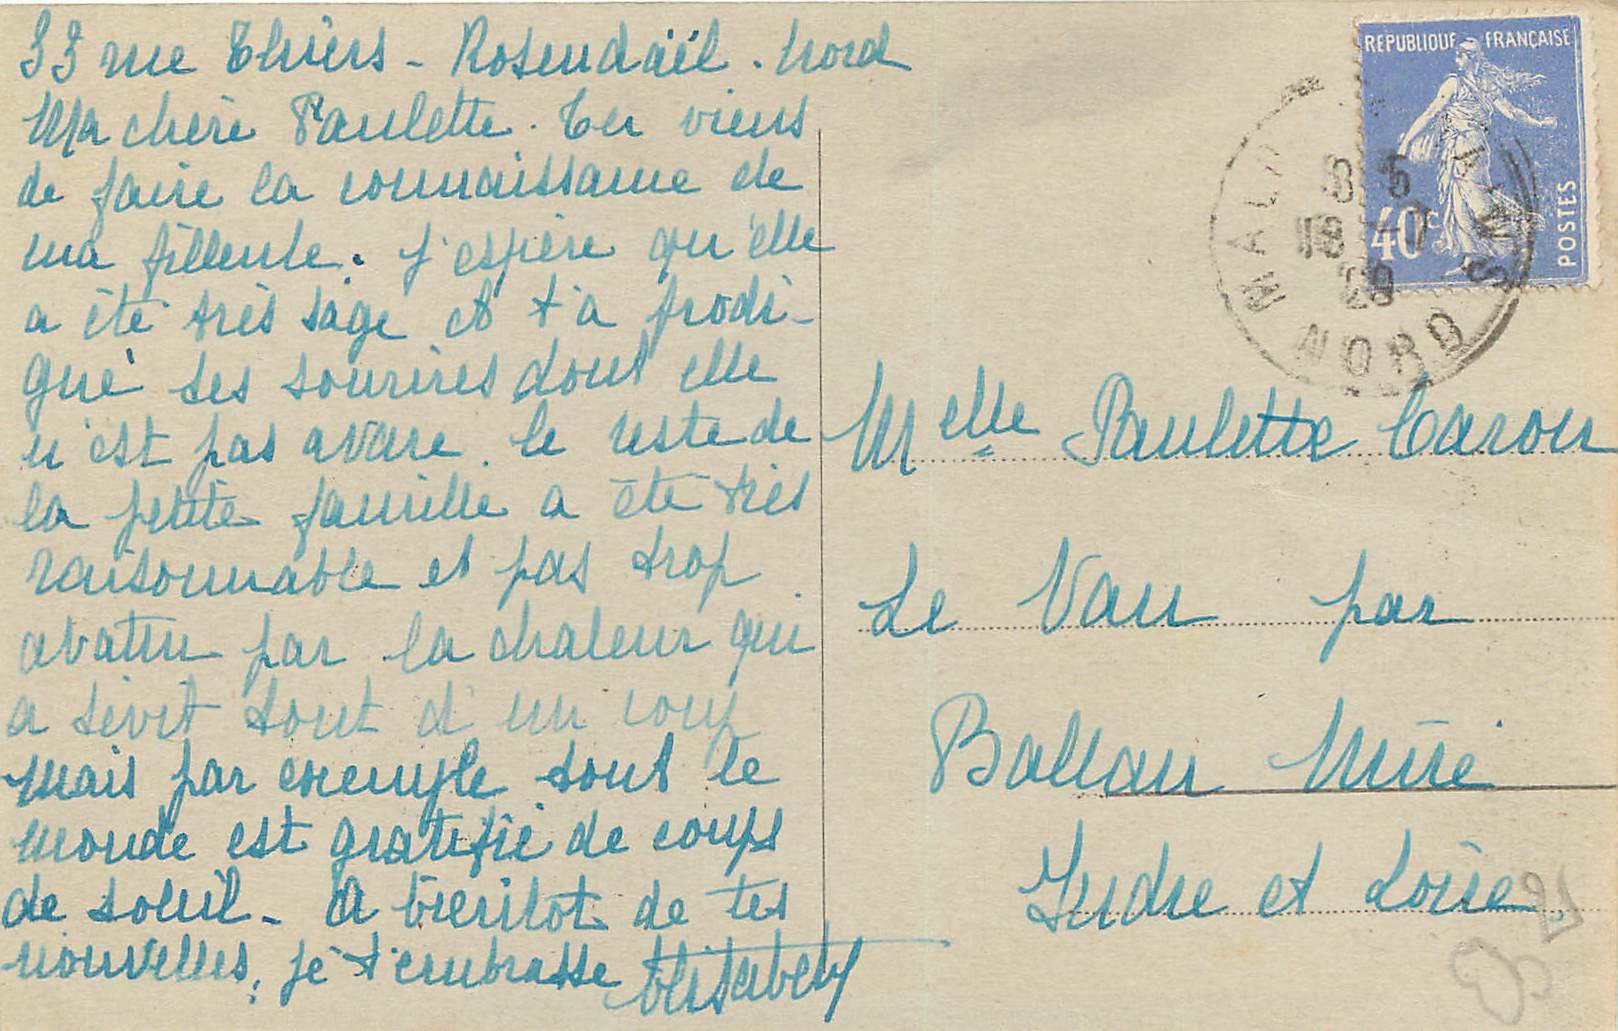 33 rue Thiers - Rosendaël. Nord
Ma chère Paulette. Tu viens
de faire la connaissance de
ma filleule. J'espère qu'elle
a été très sage et t'a prodi-
gué ses sourires dont elle
n'est pas avare. le reste de
la petite famille a été très
raisonnable et pas trop
abattu par la chaleur qui
a sévit tout d'un coup
mais par exemple tout le
monde est gratifié de coups
de soleil - A bientôt de tes
nouvelles, je t'embrasse Elisabeth
REPUBLIQUE FRANÇAISE
40c
POSTES
MALO
BAINS
NORD
Melle Paulette Caron
Le Vau par
Ballan Miré
Indre et Loire